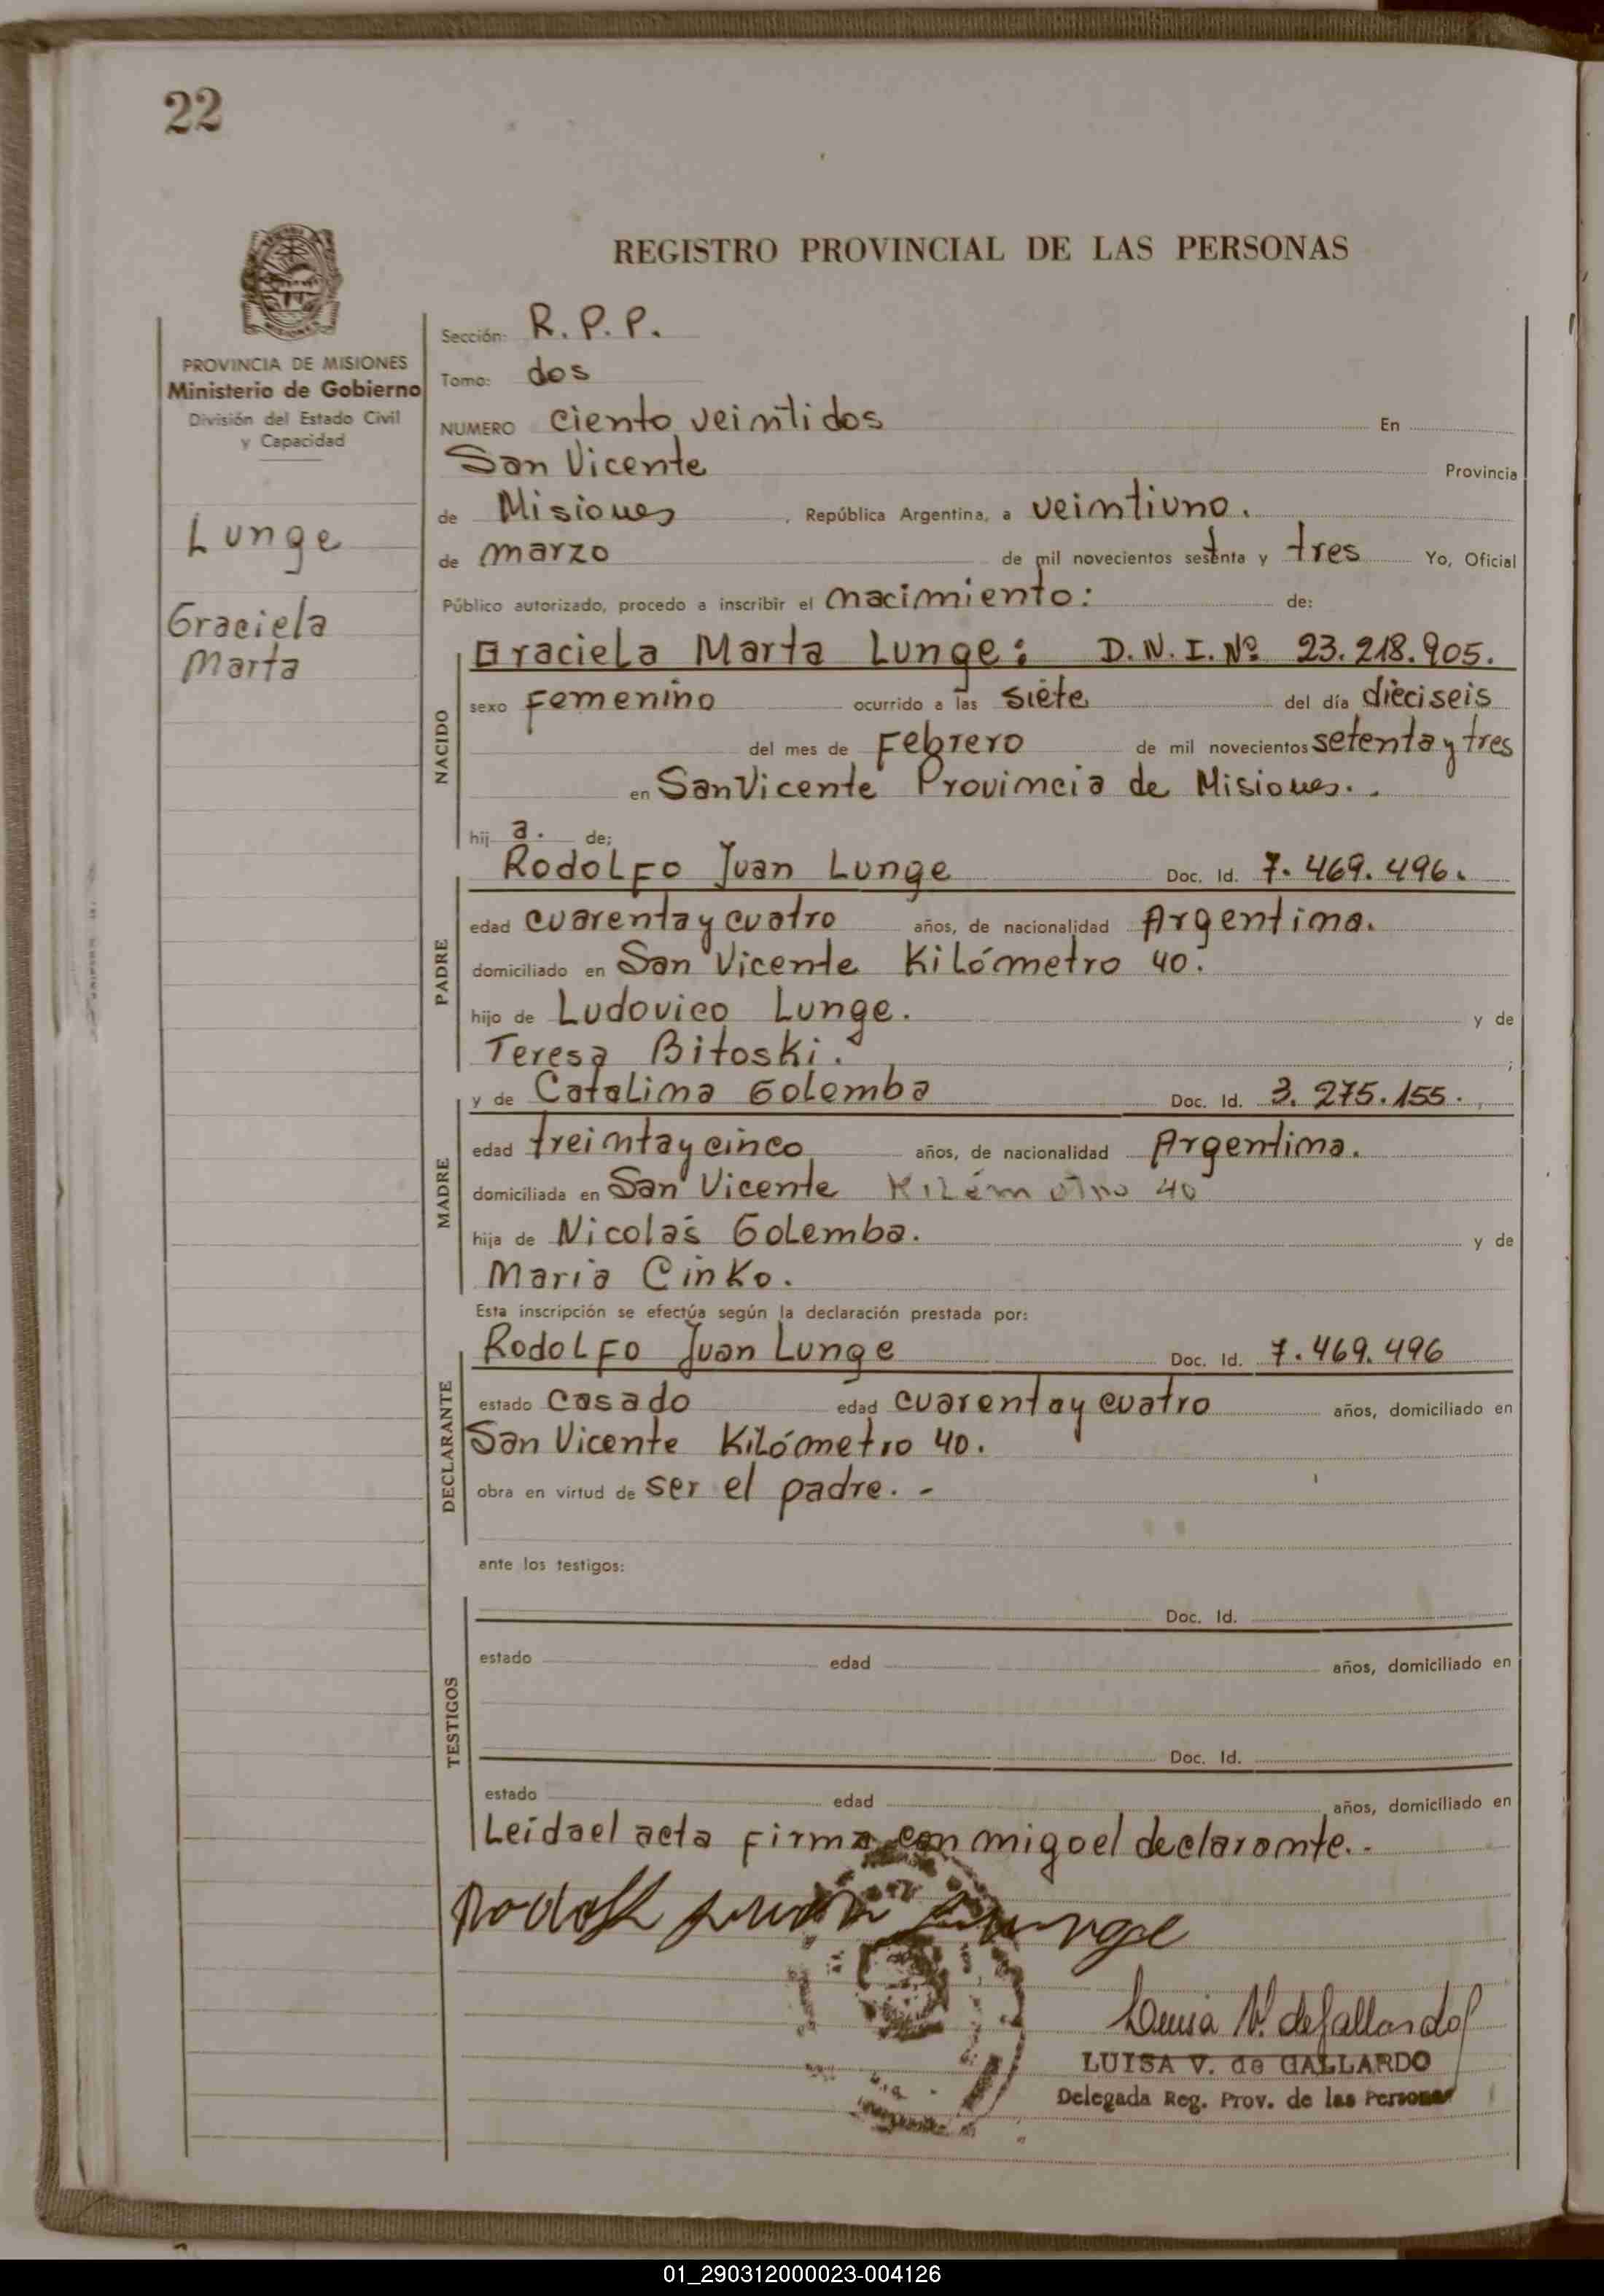 22
REGISTRO PROVINCIAL DE LAS PERSONAS
PROVINCIA DE MISIONES
Ministerio de Gobierno
División del Estado Civil
y Capacidad
Lunge
Graciela
Marta
Sección: R.P.P.
Tomo: dos
NUMERO ciento veintidos En
San Vicente Provincia
de Misiones, República Argentina, a veintiuno.
de marzo de mil novecientos setenta y tres Yo, Oficial
Público autorizado, procedo a inscribir el nacimiento: de:
NACIDO
Graciela Marta Lunge: D.N.I.Nº 23.218.905.
sexo Femenino ocurrido a las siete del día dieciseis
del mes de Febrero de mil novecientos setenta y tres
en San Vicente Provincia de Misiones..
hij a. de:
PADRE
Rodolfo Juan Lunge Doc. Id. 7.469.496.
edad cuarenta y cuatro años, de nacionalidad Argentina.
domiciliado en San Vicente Kilómetro 40.
hijo de Ludovico Lunge. y de
Teresa Bitoski. ;
MADRE
y de Catalina Golemba Doc. Id. 3.275.155.
edad treinta y cinco años, de nacionalidad Argentina.
domiciliada en San Vicente Kilómetro 40
hija de Nicolás Golemba. y de
Maria Cinko.
Esta inscripción se efectúa según la declaración prestada por:
DECLARANTE
Rodolfo Juan Lunge Doc. Id. 7.469.496
estado casado edad cuarenta y cuatro años, domiciliado en
San Vicente Kilómetro 40.
obra en virtud de ser el padre. -
ante los testigos:
TESTIGOS
Doc. Id.
estado edad años, domiciliado en
Doc. Id.
estado edad años, domiciliado en
Leida el acta firma conmigo el declarante. -
Rodolf Juan Lunge
Luisa V. de Gallardo
LUISA V. de GALLARDO
Delegada Reg. Prov. de las Personas
01_290312000023-004126